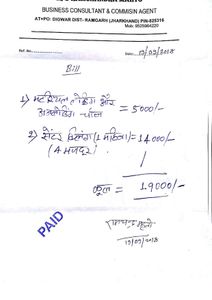 BUSINESS CONSULTANT & COMMISIN AGENT
AT+PO: DIGWAR DIST- RAMGARH (JHARKHAND) PIN-825316
Mob: 9525964220
Ref. No.
Date 13/09/2018
Bill
1) मटेरियल लोडिंग और
अनलोडिंग चार्ज = 5000/-
2) सेंटरिंग (1 महिना) = 14000/-
(4 मजदूर)
कुल = 19000/-
PAID
13/09/2018